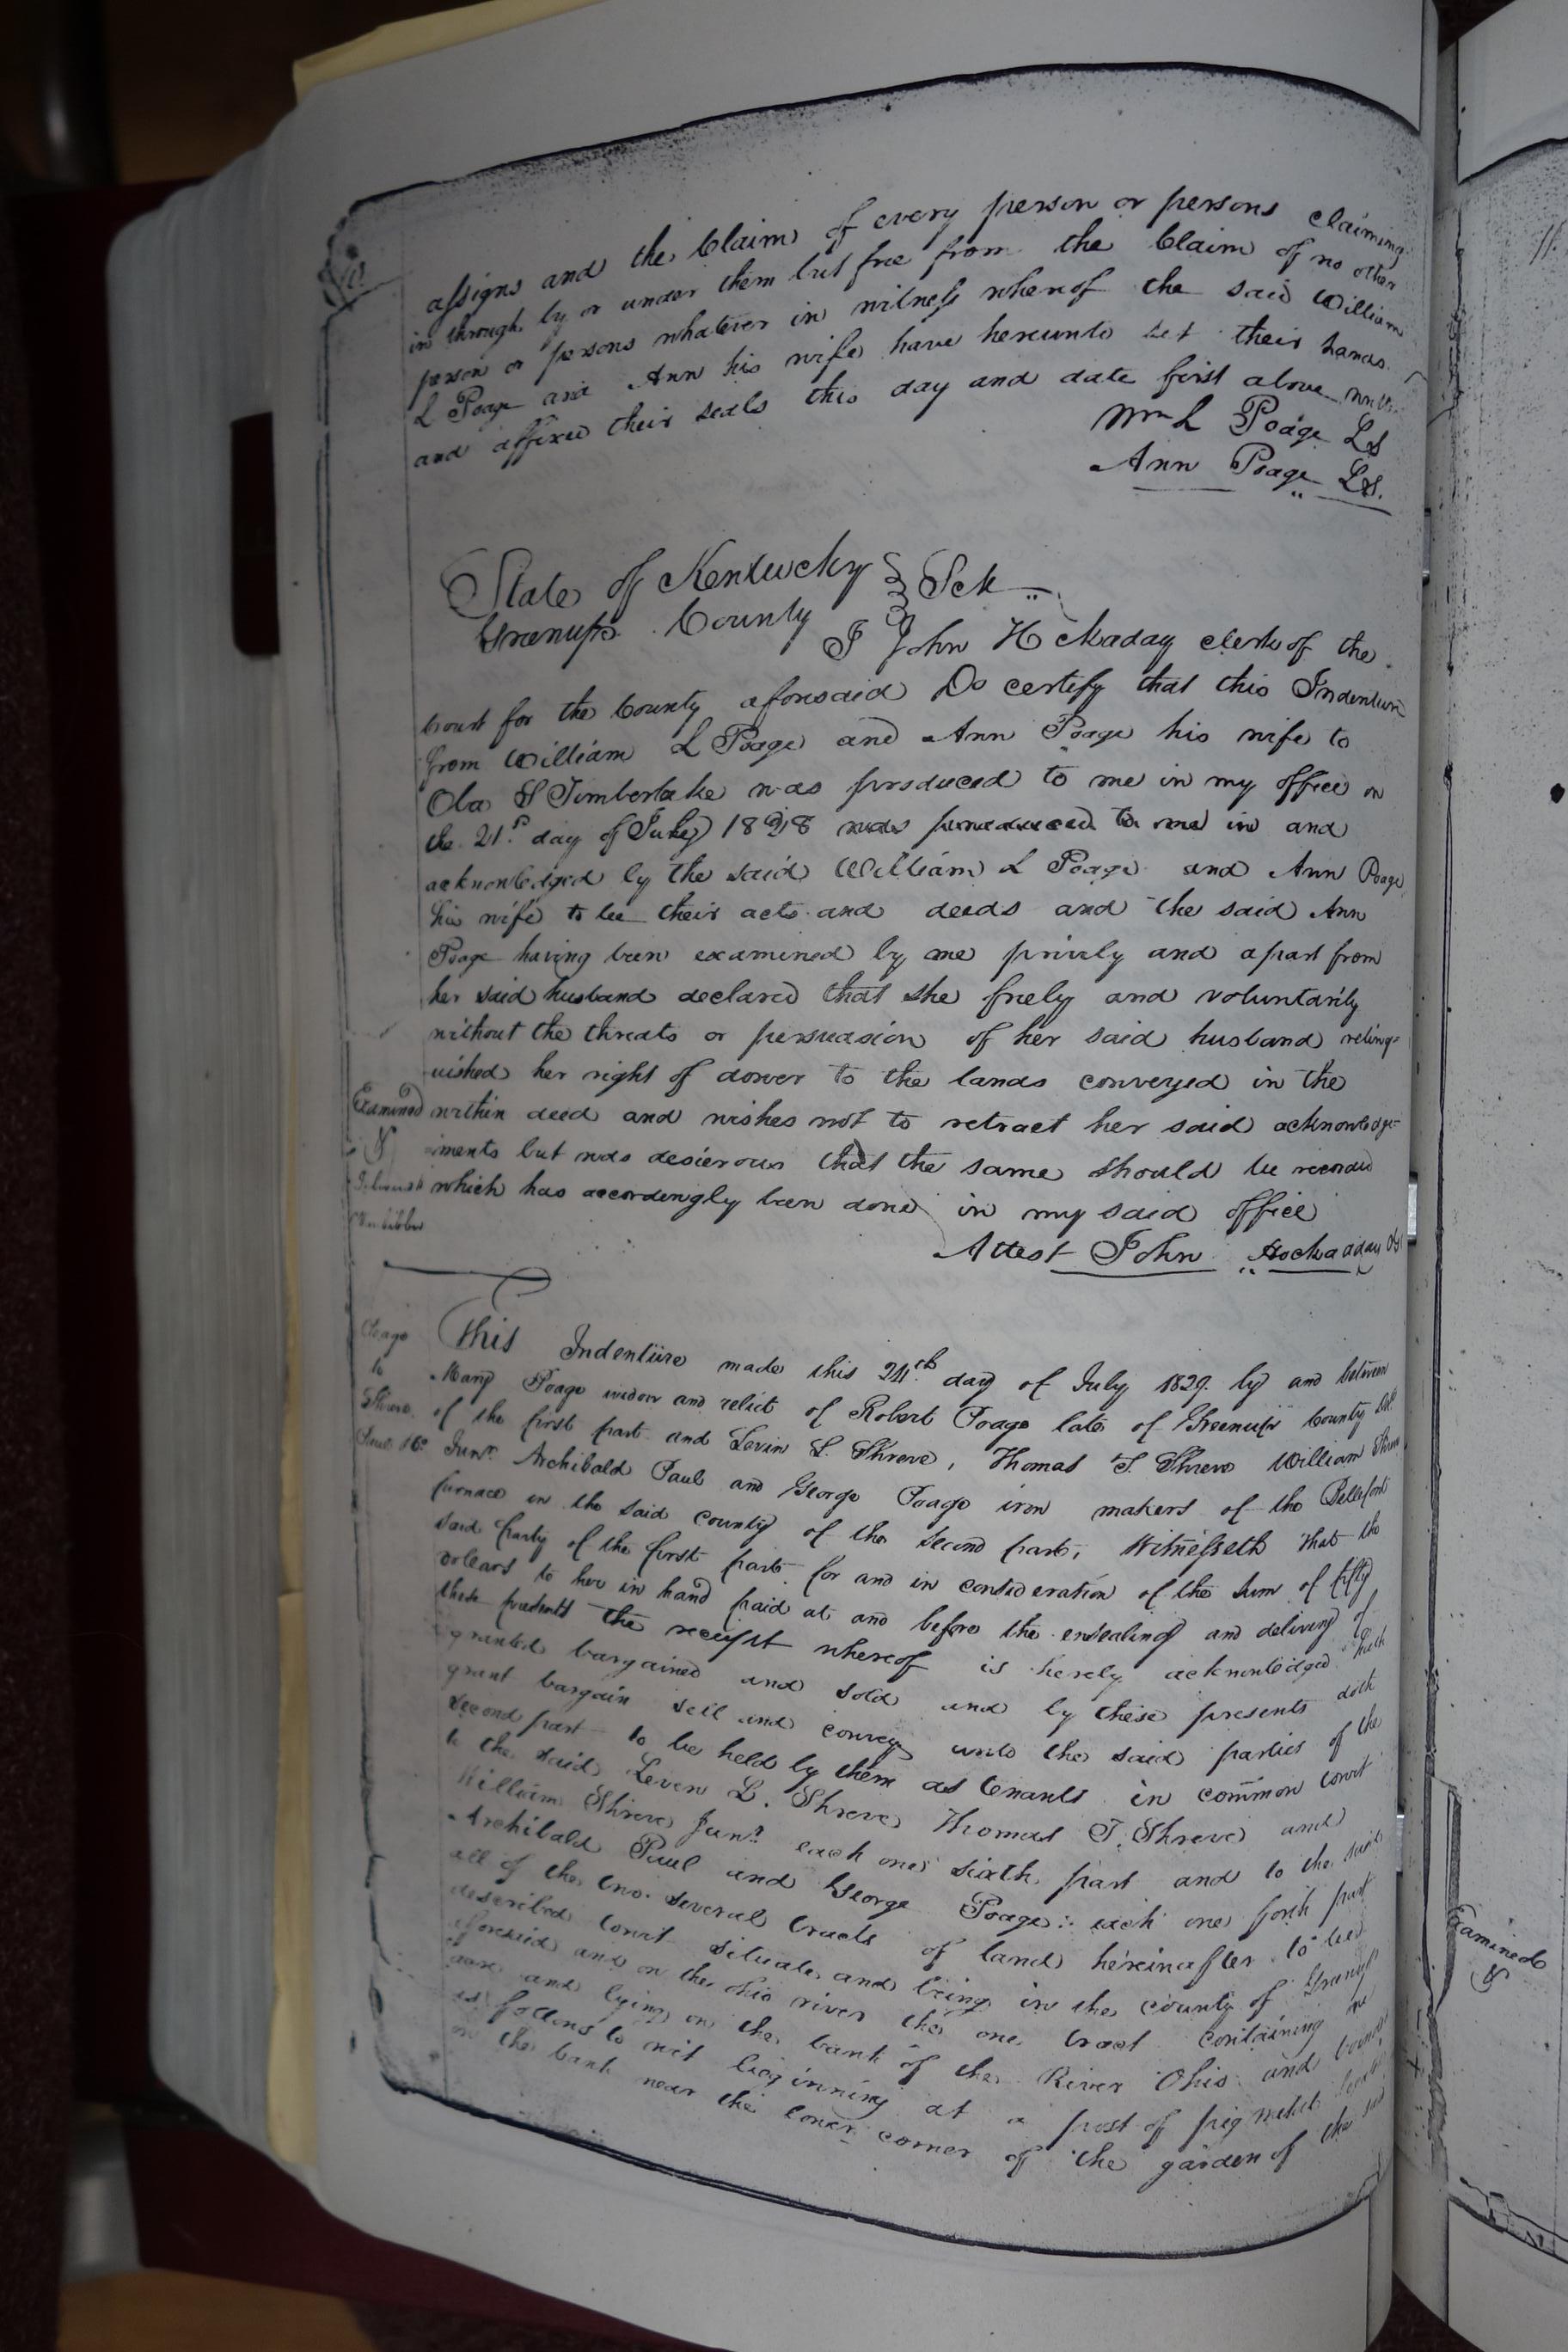 assigns and the Claim of every person or persons claiming
in through by or under them but free from the Claim of no other
person or persons whatever in witness whereof the said William
L Poage and Ann his wife have hereunto set their hands
and affixed their seals this day and date first above
Wm L Poage LS
Ann Poage LS.
State of Kentucky
Greenup County
Sct
I John Hockaday clerk of the
Court for the County aforesaid Do certify that this Indenture
from William L Poage and Ann Poage his wife to
Ola S Timberlake was produced to me in my office on
the 21st day of July 1828 was produced to me in and
acknowledged by the said William L Poage and Ann Poage
his wife to be their acts and deeds and the said Ann
Poage having been examined by me privily and apart from
her said husband declared that she freely and voluntarily
without the threats or persuasion of her said husband relinq=
uished her right of dower to the lands conveyed in the
Examined
within deed and wishes not to retract her said acknowledge=
ments but was desierous that the same should be recorded
which has accordengly been done in my said office
Attest John Hockaday
Poage
to
Shreve
Paul &c
This Indenture made this 24th day of July 1829 by and between
Mary Poage widow and relict of Robert Poage late of Greenup County
of the first part and Levin L. Shreve, Thomas T. Shreve William Shreve
Junr. Archibald Paul and George Poage iron makers of the Bellefont
furnace in the said county of the second part, Witnesseth that the
said party of the first part for and in consideration of the sum of fifty
dolears to her in hand paid at and before the ensealing and delivery of
these presents the receipt whereof is hereby acknowledged hath
granted bargained and sold and by these presents doth
grant bargain sell and convey unto the said parties of the
second part to be held by them as tenants in common towit
to the said Leven L. Shreve Thomas T. Shreve and
William Shreve Junr. each one sixth part and to the said
Archibald Paul and George Poage each one forth part
all of the two several tracts of land hereinafter to be
described towit situate and being in the county of Greenup
aforesaid and on the ohio river the one tract containing one
acre and lying on the bank of the River Ohio and bounded
as follows to wit beginning at a post of pig metal
on the bank near the lower corner of the garden of the said
Examined
&